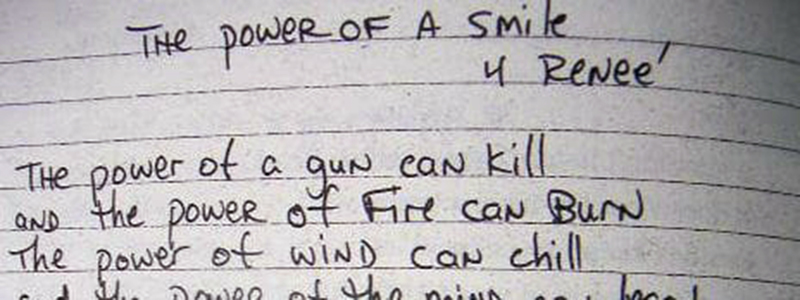 THE power OF A Smile
4 Renee'
THE power of a gun can kill
AND the power of Fire can Burn
The power of WIND can chill
the power of the